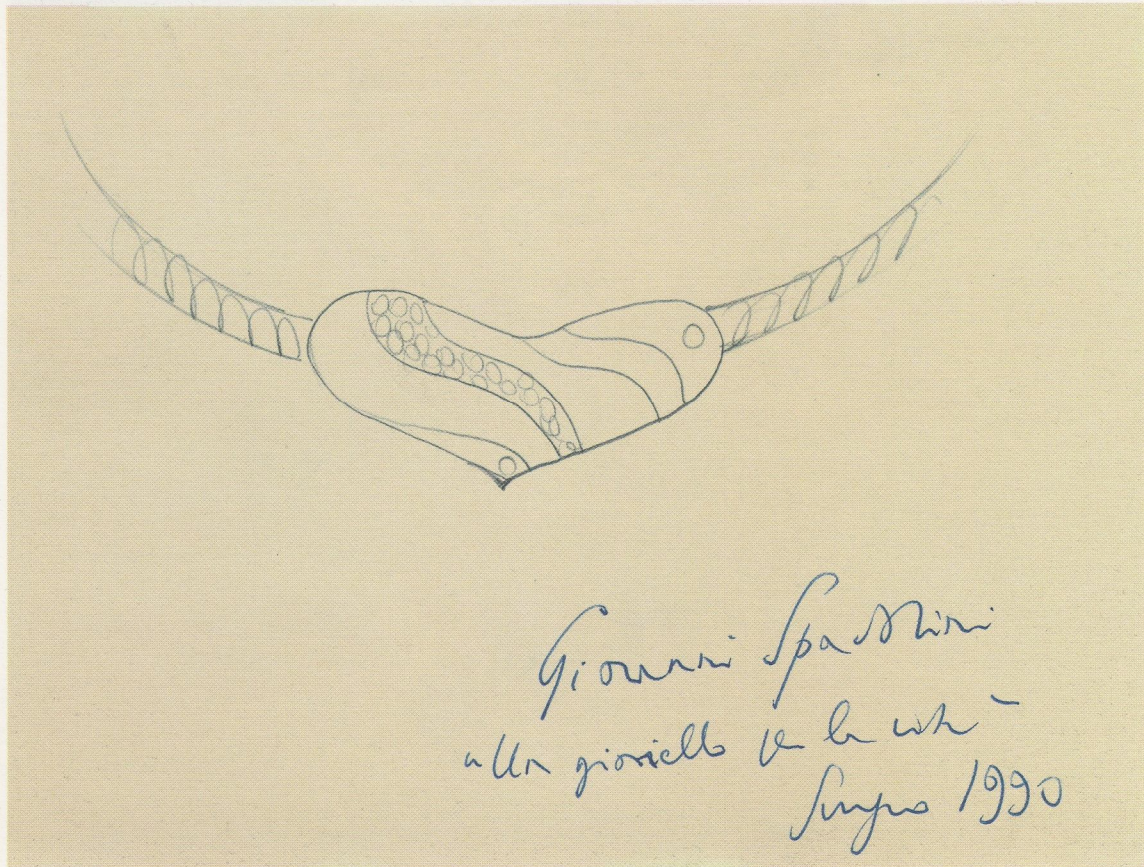 Giovanni Spadolini
"Un gioiello per la vita"
Giugno 1990